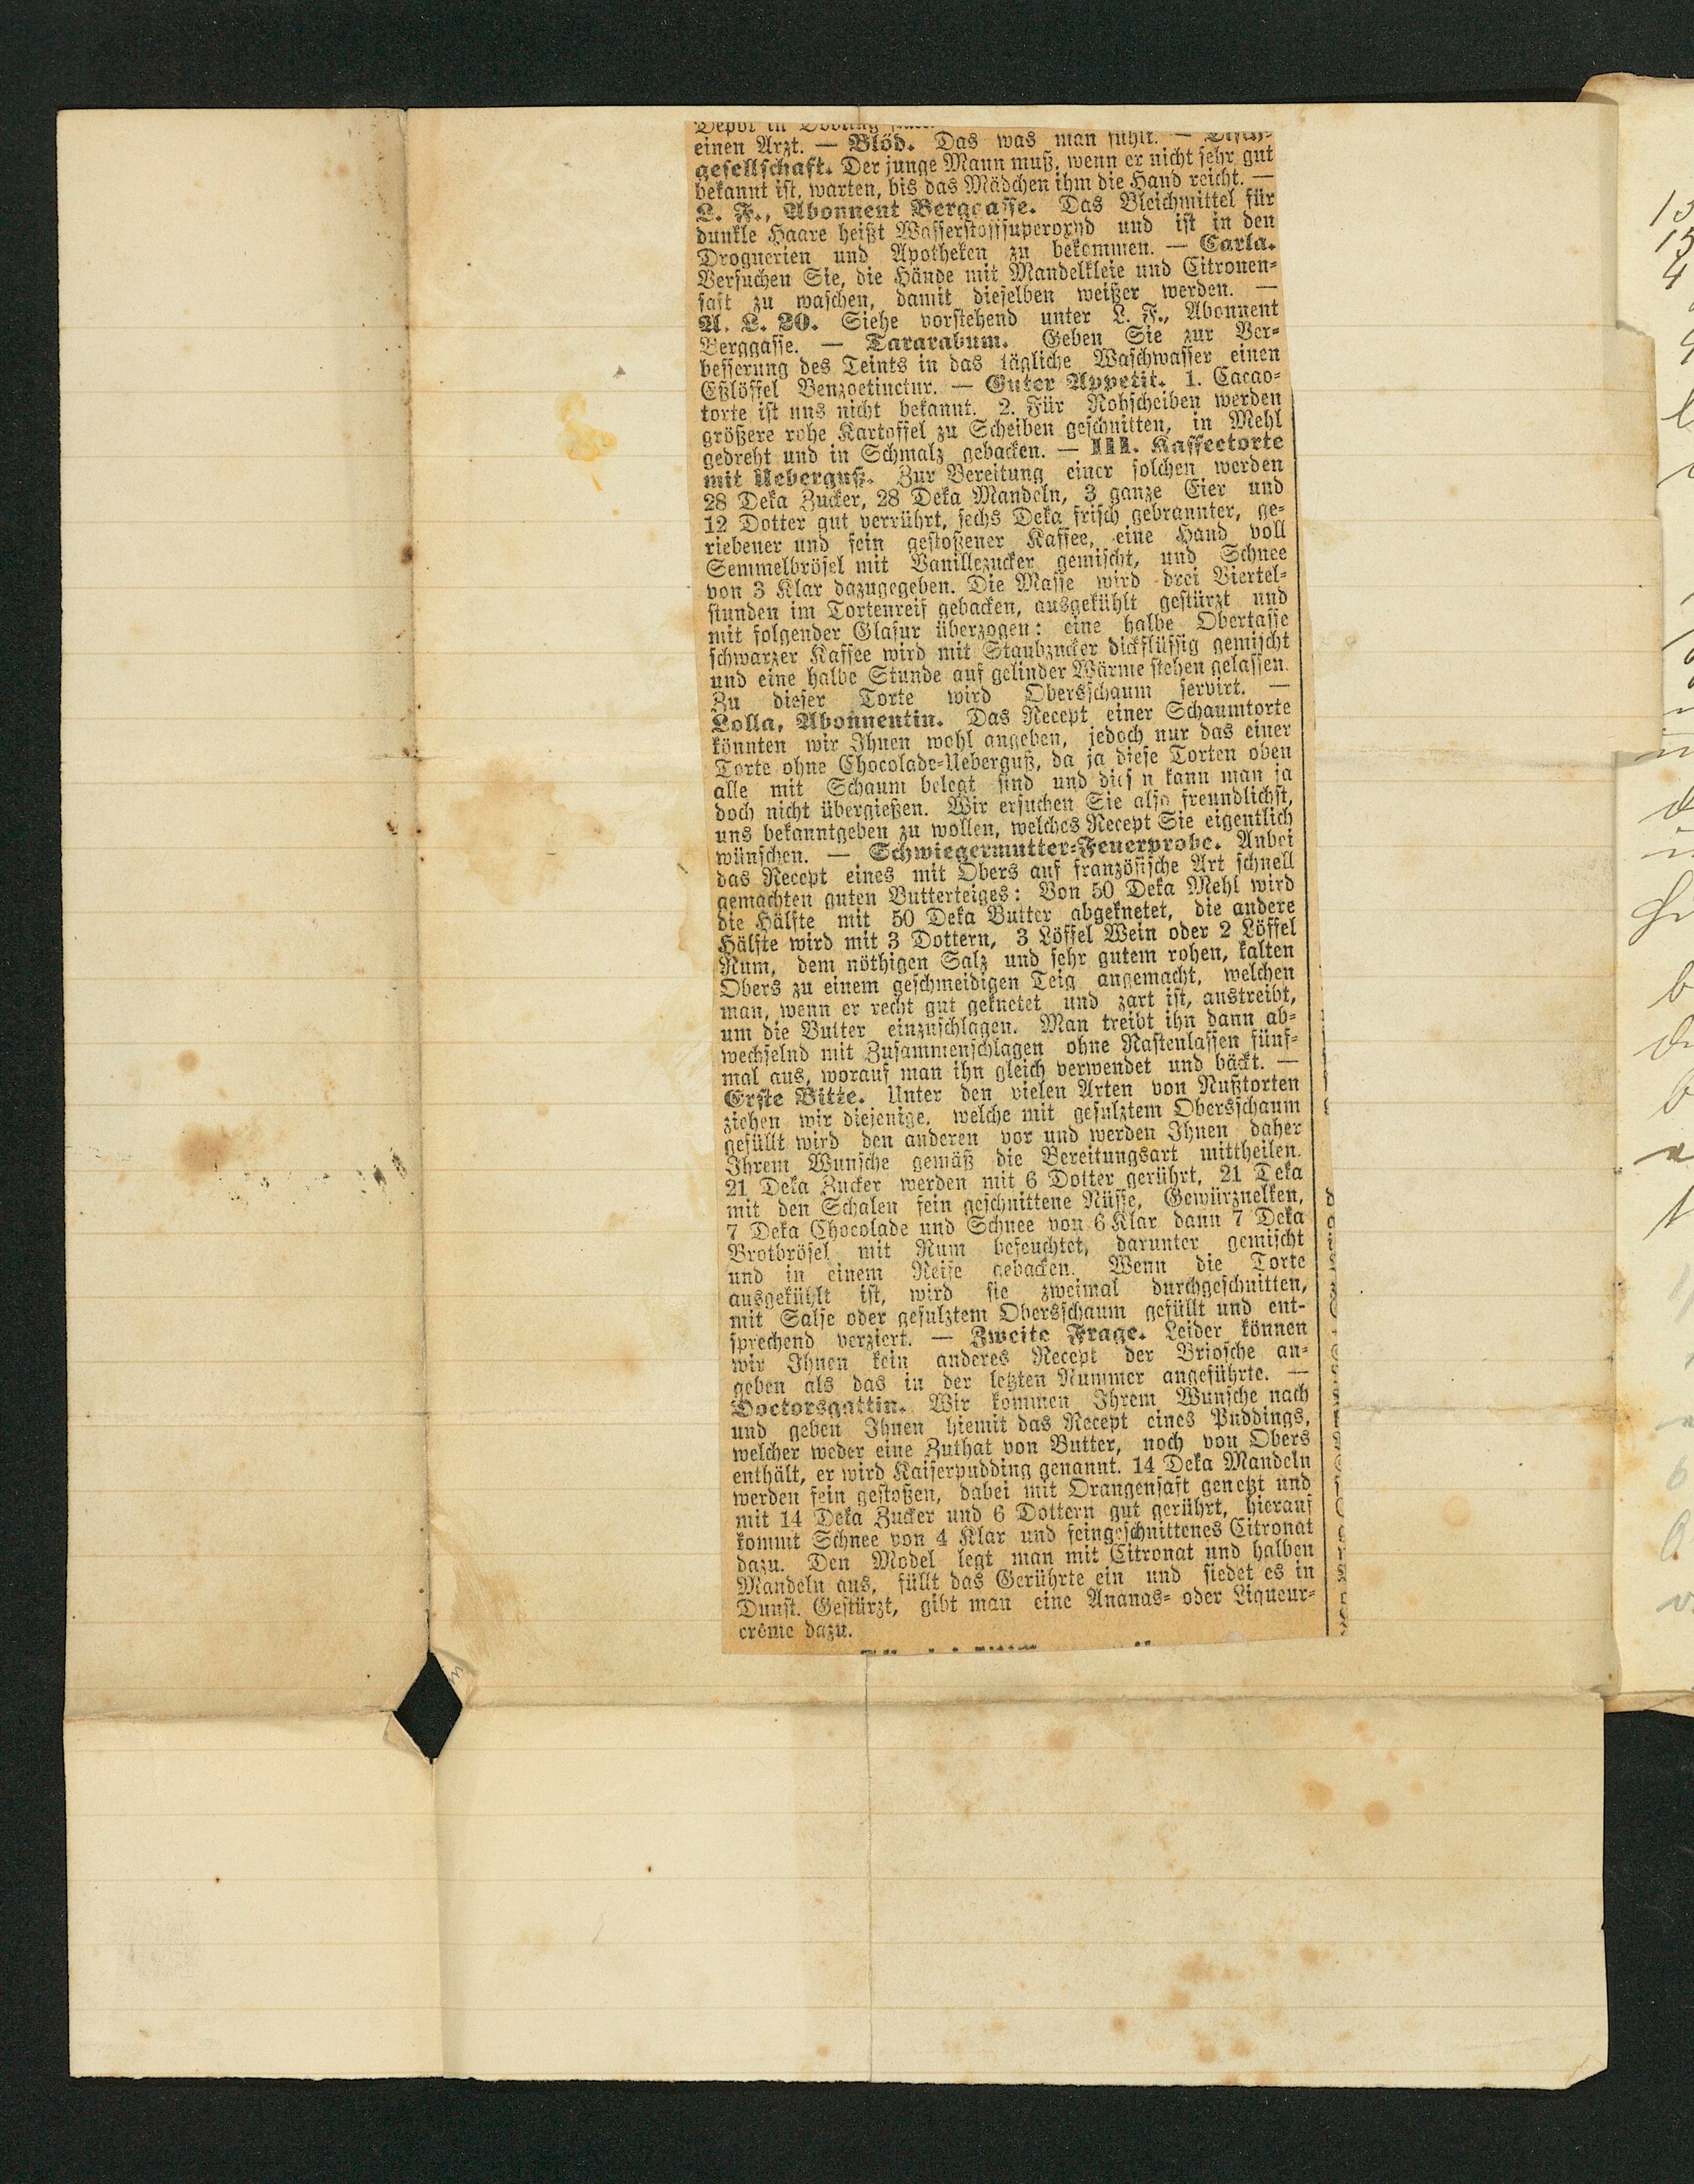 Depot in Döbling
einen Arzt. — Blöd. Das was man fühlt. — Tisch-
gesellschaft. Der junge Mann muß, wenn er nicht sehr gut
bekannt ist, warten, bis das Mädchen ihm die Hand reicht. —
L. F., Abonnent Berggasse. Das Bleichmittel für
dunkle Haare heißt Wasserstoffsuperoxyd und ist in den
Droguerien und Apotheken zu bekommen. — Carla.
Versuchen Sie, die Hände mit Mandelkleie und Citronen-
saft zu waschen, damit dieselben weißer werden. —
A. L. 20. Siehe vorstehend unter L. F., Abonnent
Berggasse. — Tararabum. Geben Sie zur Ver-
besserung des Teints in das tägliche Waschwasser einen
Eßlöffel Benzoetinctur. — Guter Appetit. 1. Cacao-
torte ist uns nicht bekannt. 2. Für Rohscheiben werden
größere rohe Kartoffel zu Scheiben geschnitten, in Mehl
gedreht und in Schmalz gebacken. — III. Kaffeetorte
mit Ueberguß. Zur Bereitung einer solchen werden
28 Deka Zucker, 28 Deka Mandeln, 3 ganze Eier und
12 Dotter gut verrührt, sechs Deka frisch gebrannter, ge-
riebener und fein gestoßener Kaffee, eine Hand voll
Semmelbrösel mit Vanillezucker gemischt, und Schnee
von 3 Klar dazugegeben. Die Masse wird drei Viertel-
stunden im Tortenreif gebacken, ausgekühlt gestürzt und
mit folgender Glasur überzogen: eine halbe Obertasse
schwarzer Kaffee wird mit Staubzucker dickflüssig gemischt
und eine halbe Stunde auf gelinder Wärme stehen gelassen.
Zu dieser Torte wird Obersschaum servirt. —
Lolla, Abonnentin. Das Recept einer Schaumtorte
könnten wir Ihnen wohl angeben, jedoch nur das einer
Torte ohne Chocolade-Ueberguß, da ja diese Torten oben
alle mit Schaum belegt sind und dies n kann man ja
doch nicht übergießen. Wir ersuchen Sie also freundlichst,
uns bekanntgeben zu wollen, welches Recept Sie eigentlich
wünschen. — Schwiegermutter-Feuerprobe. Anbei
das Recept eines mit Obers auf französische Art schnell
gemachten guten Butterteiges: Von 50 Deka Mehl wird
die Hälfte mit 50 Deka Butter abgeknetet, die andere
Hälfte wird mit 3 Dottern, 3 Löffel Wein oder 2 Löffel
Rum, dem nöthigen Salz und sehr gutem rohen, kalten
Obers zu einem geschmeidigen Teig angemacht, welchen
man, wenn er recht gut geknetet und zart ist, austreibt,
um die Butter einzuschlagen. Man treibt ihn dann ab-
wechselnd mit Zusammenschlagen ohne Rastenlassen fünf-
mal aus, worauf man ihn gleich verwendet und bäckt. —
Erste Bitte. Unter den vielen Arten von Nußtorten
ziehen wir diejenige, welche mit gesulztem Obersschaum
gefüllt wird den anderen vor und werden Ihnen daher
Ihrem Wunsche gemäß die Bereitungsart mittheilen.
21 Deka Zucker werden mit 6 Dotter gerührt, 21 Deka
mit den Schalen fein geschnittene Nüsse, Gewürznelken,
7 Deka Chocolade und Schnee von 6 Klar dann 7 Deka
Brotbrösel mit Rum befeuchtet, darunter gemischt
und in einem Reife gebacken. Wenn die Torte
ausgekühlt ist, wird sie zweimal durchgeschnitten,
mit Salse oder gesulztem Obersschaum gefüllt und ent-
sprechend verziert. — Zweite Frage. Leider können
wir Ihnen kein anderes Recept der Briosche an-
geben als das in der letzten Nummer angeführte. —
Doctorsgattin. Wir kommen Ihrem Wunsche nach
und geben Ihnen hiemit das Recept eines Puddings,
welcher weder eine Zuthat von Butter, noch von Obers
enthält, er wird Kaiserpudding genannt. 14 Deka Mandeln
werden fein gestoßen, dabei mit Orangensaft genetzt und
mit 14 Deka Zucker und 6 Dottern gut gerührt, hierauf
kommt Schnee von 4 Klar und feingeschnittenes Citronat
dazu. Den Model legt man mit Citronat und halben
Mandeln aus, füllt das Gerührte ein und siedet es in
Dunst. Gestürzt, gibt man eine Ananas- oder Liqueur-
crême dazu.